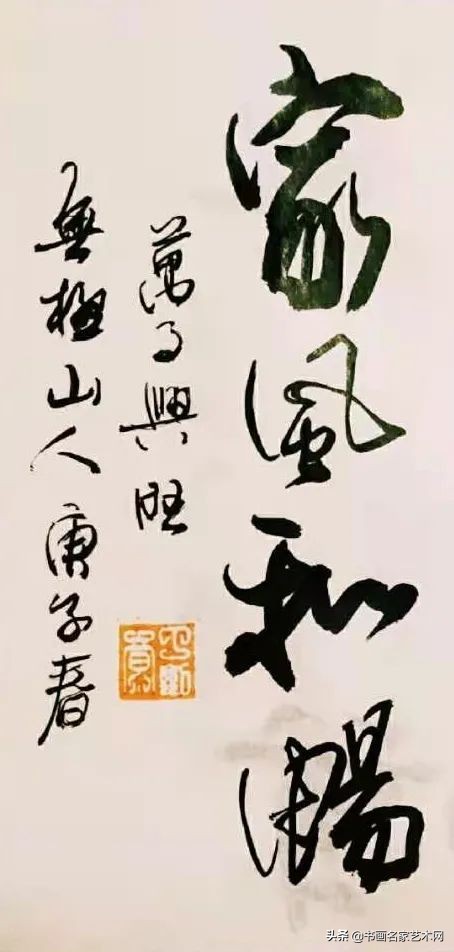 家風和暢
萬事興旺
無極山人庚子春
头条 @书画名家艺术网